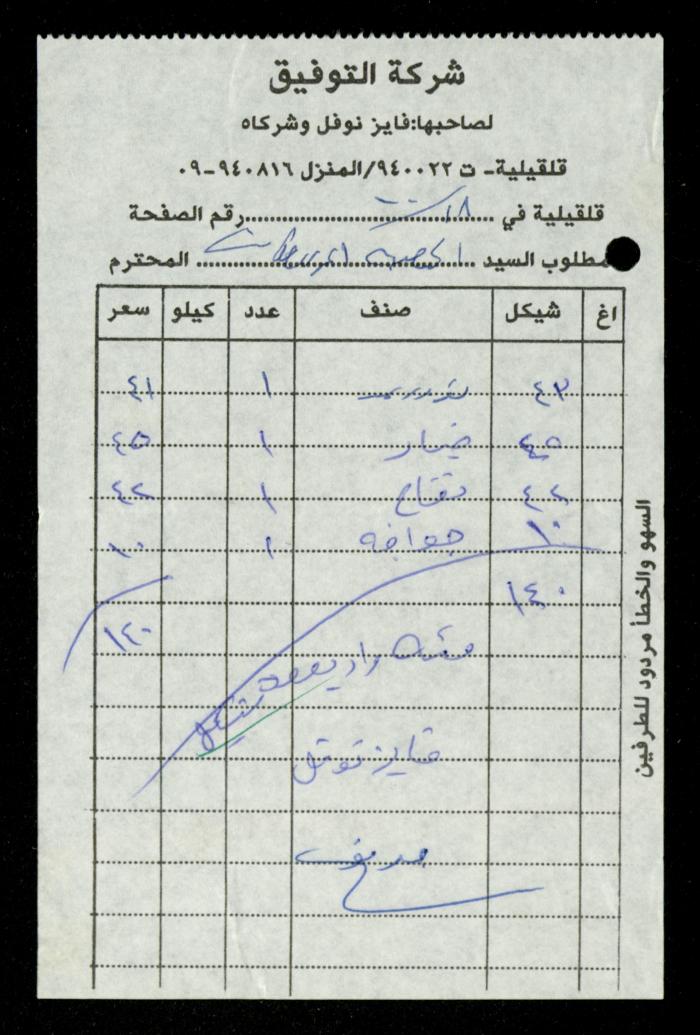 شركة التوفيق
لصاحبها:فايز نوفل وشركاه
قلقيلية- ت ٩٤٠٠٢٢/المنزل ٩٤٠٨١٦-٠٩
قلقيلية في ................ رقم الصفحة
مطلوب السيد ................ المحترم
اغ شيكل صنف عدد كيلو سعر
٤٣ ١ ٤١
٤٥ خيار ١ ٤٥
٤٢ تفاح ١ ٤٢
١٠ جوافه ١ ١٠
١٤٠
١٢٠
فايز نوفل
السهو والخطأ مردود للطرفين